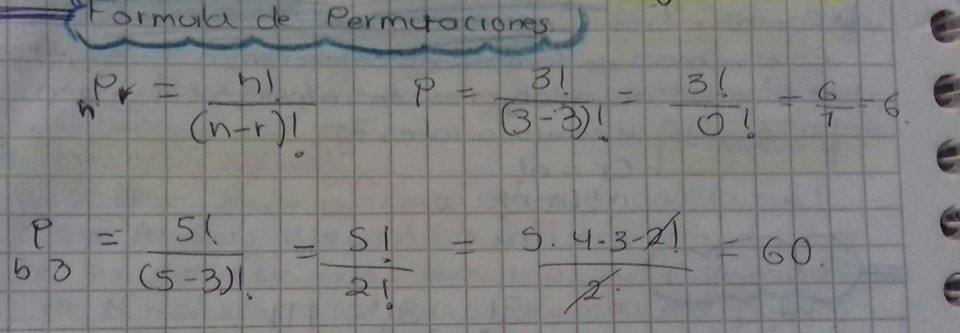 Formula de Permutaciones.
nPr = n!/(n-r)! P = 3!/(3-3)! = 3!/0! = 6/1 = 6.
P b 3 = 5!/(5-3)! = 5!/2! = 5·4·3·2!/2· = 60.